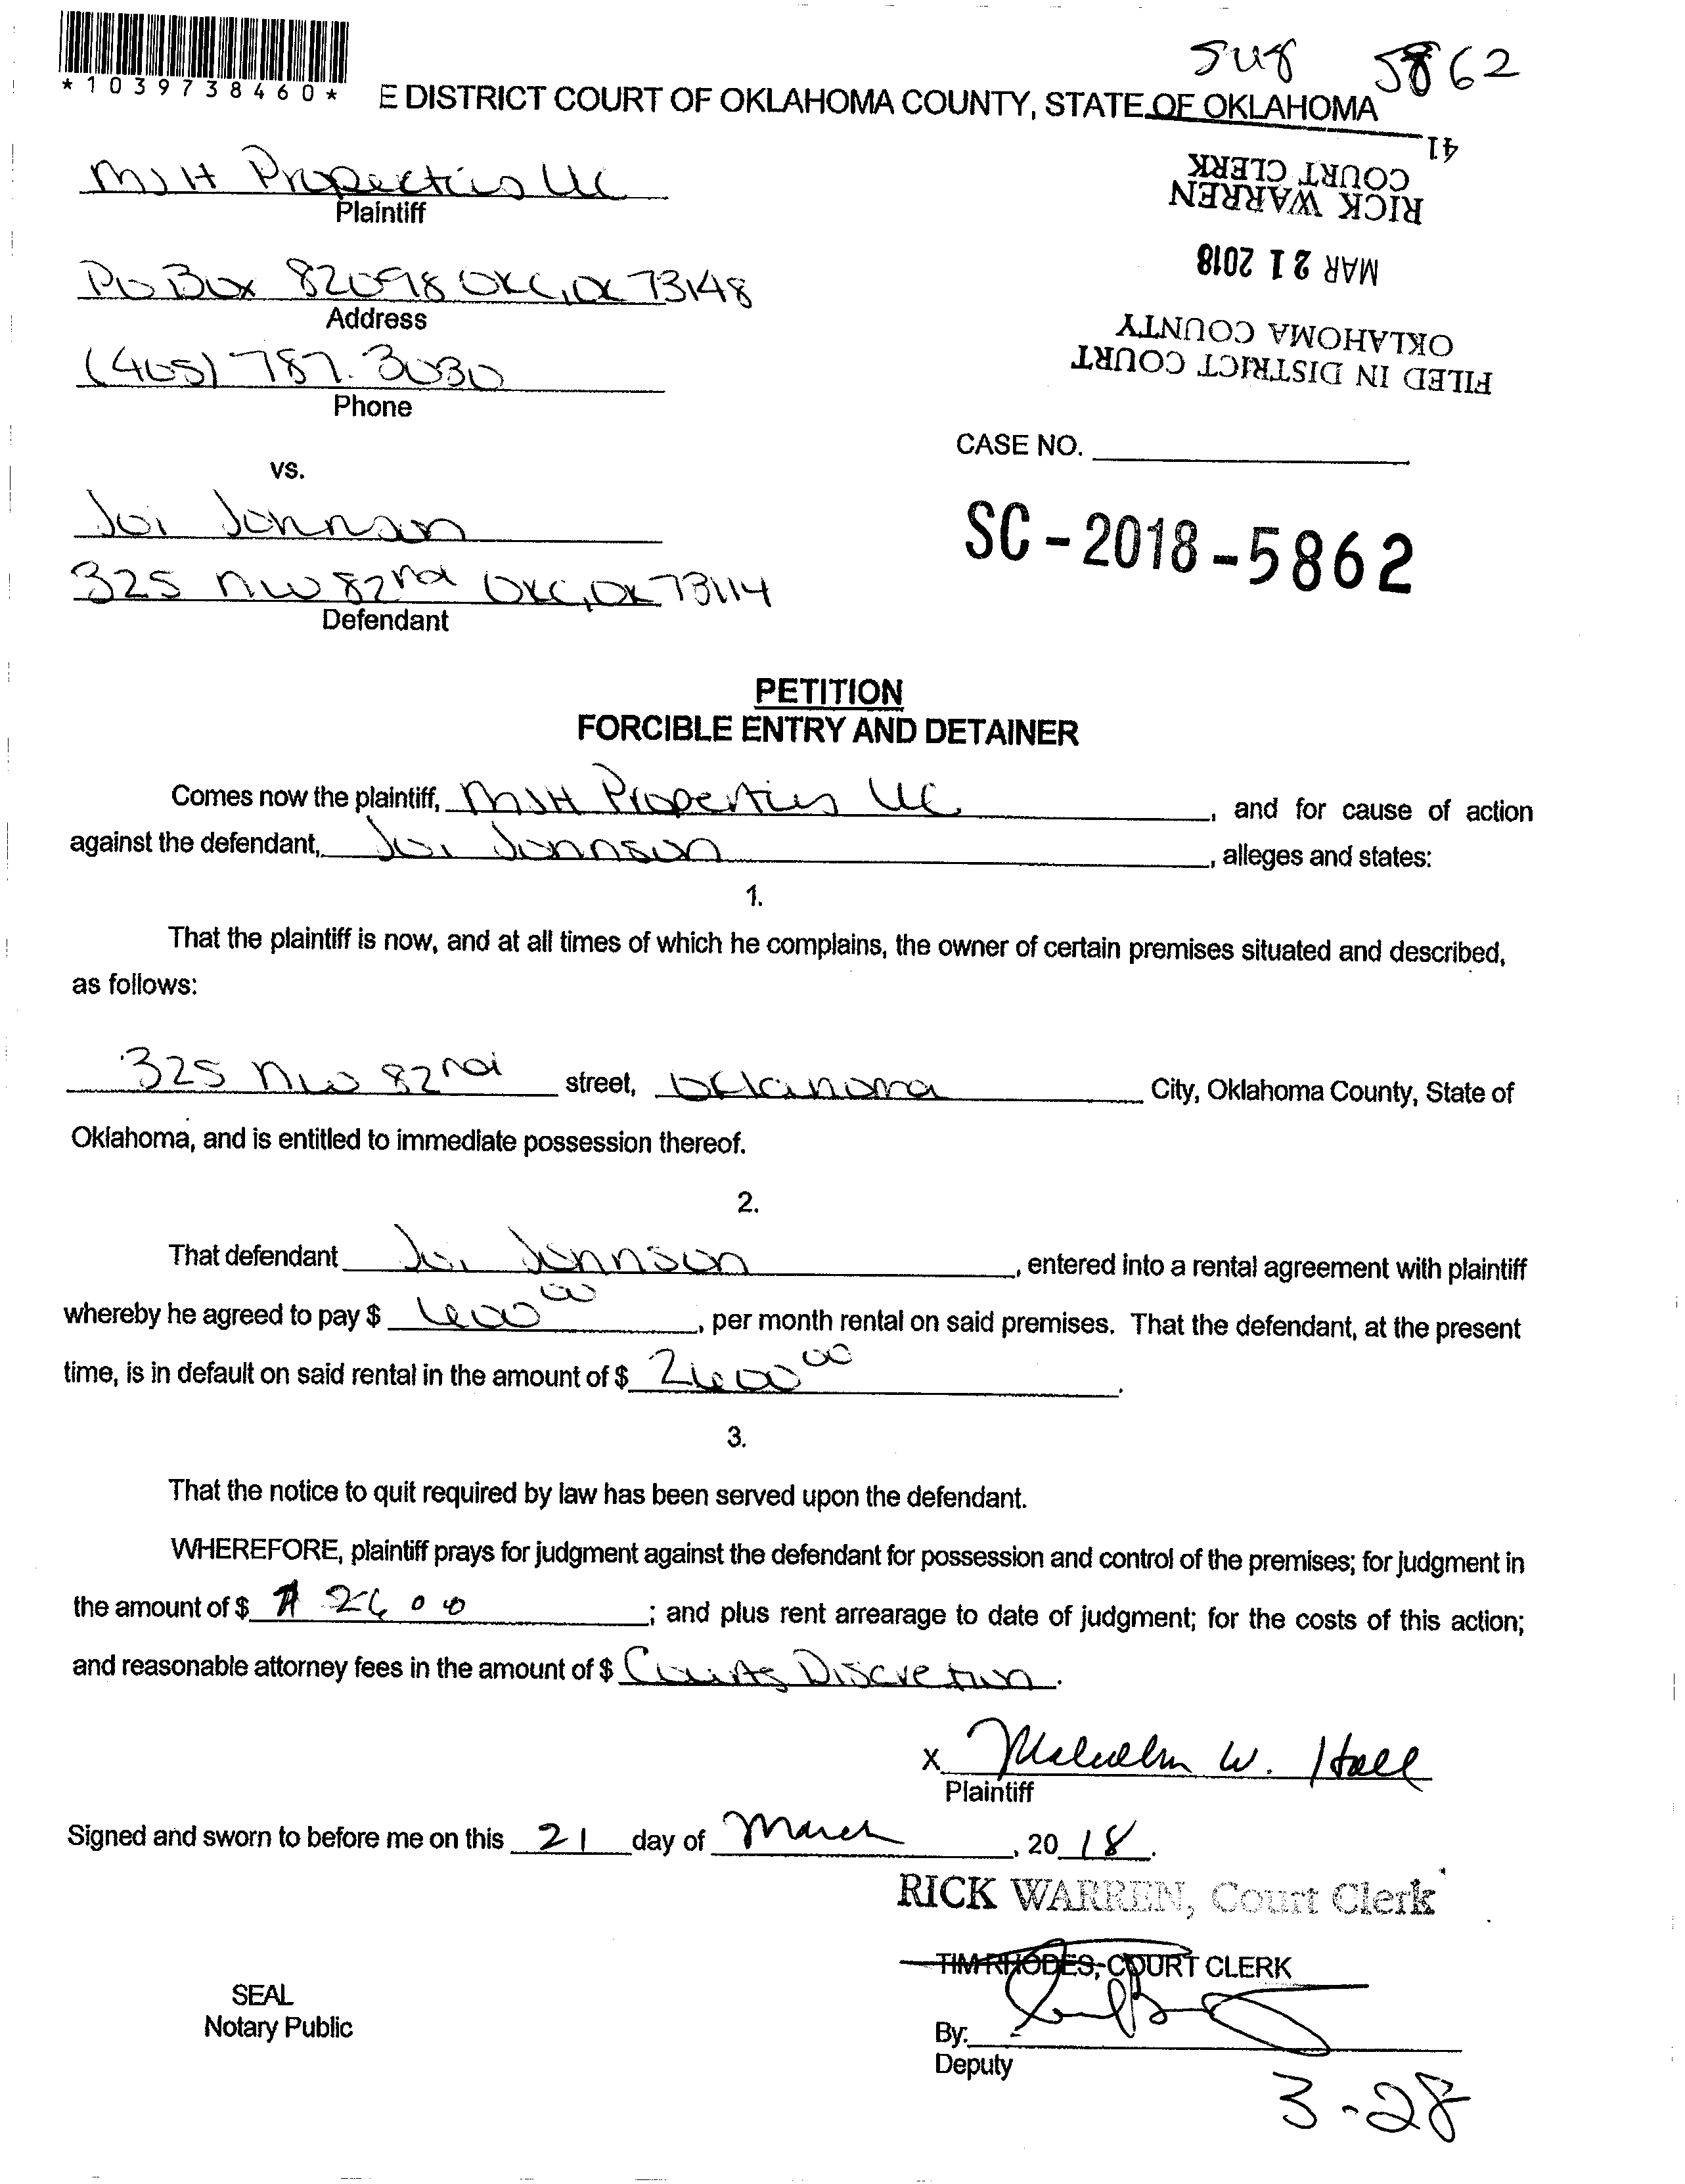 *1039738460*
5862
E DISTRICT COURT OF OKLAHOMA COUNTY, STATE OF OKLAHOMA
41
MJH Properties LLC
Plaintiff
PO Box 82098 OKC, OK 73148
Address
(405) 787.3030
Phone
FILED IN DISTRICT COURT
OKLAHOMA COUNTY
MAR 21 2018
RICK WARREN
COURT CLERK
CASE NO.
vs.
SC-2018-5862
Joi Johnson
325 NW 82nd OKC, OK 73114
Defendant
PETITION
FORCIBLE ENTRY AND DETAINER
Comes now the plaintiff, MJH Properties LLC, and for cause of action
against the defendant, Joi Johnson, alleges and states:
1.
That the plaintiff is now, and at all times of which he complains, the owner of certain premises situated and described,
as follows:
325 NW 82nd street, Oklahoma City, Oklahoma County, State of
Oklahoma, and is entitled to immediate possession thereof.
2.
That defendant Joi Johnson, entered into a rental agreement with plaintiff
whereby he agreed to pay $ 600 00, per month rental on said premises. That the defendant, at the present
time, is in default on said rental in the amount of $ 2600 00.
3.
That the notice to quit required by law has been served upon the defendant.
WHEREFORE, plaintiff prays for judgment against the defendant for possession and control of the premises; for judgment in
the amount of $ 2600; and plus rent arrearage to date of judgment; for the costs of this action;
and reasonable attorney fees in the amount of $ Courts Discretion.
X Malcolm W. Hall
Plaintiff
Signed and sworn to before me on this 21 day of March, 2018.
RICK WARREN, Court Clerk
TIM RHODES, COURT CLERK
SEAL
Notary Public
By:
Deputy
3-28